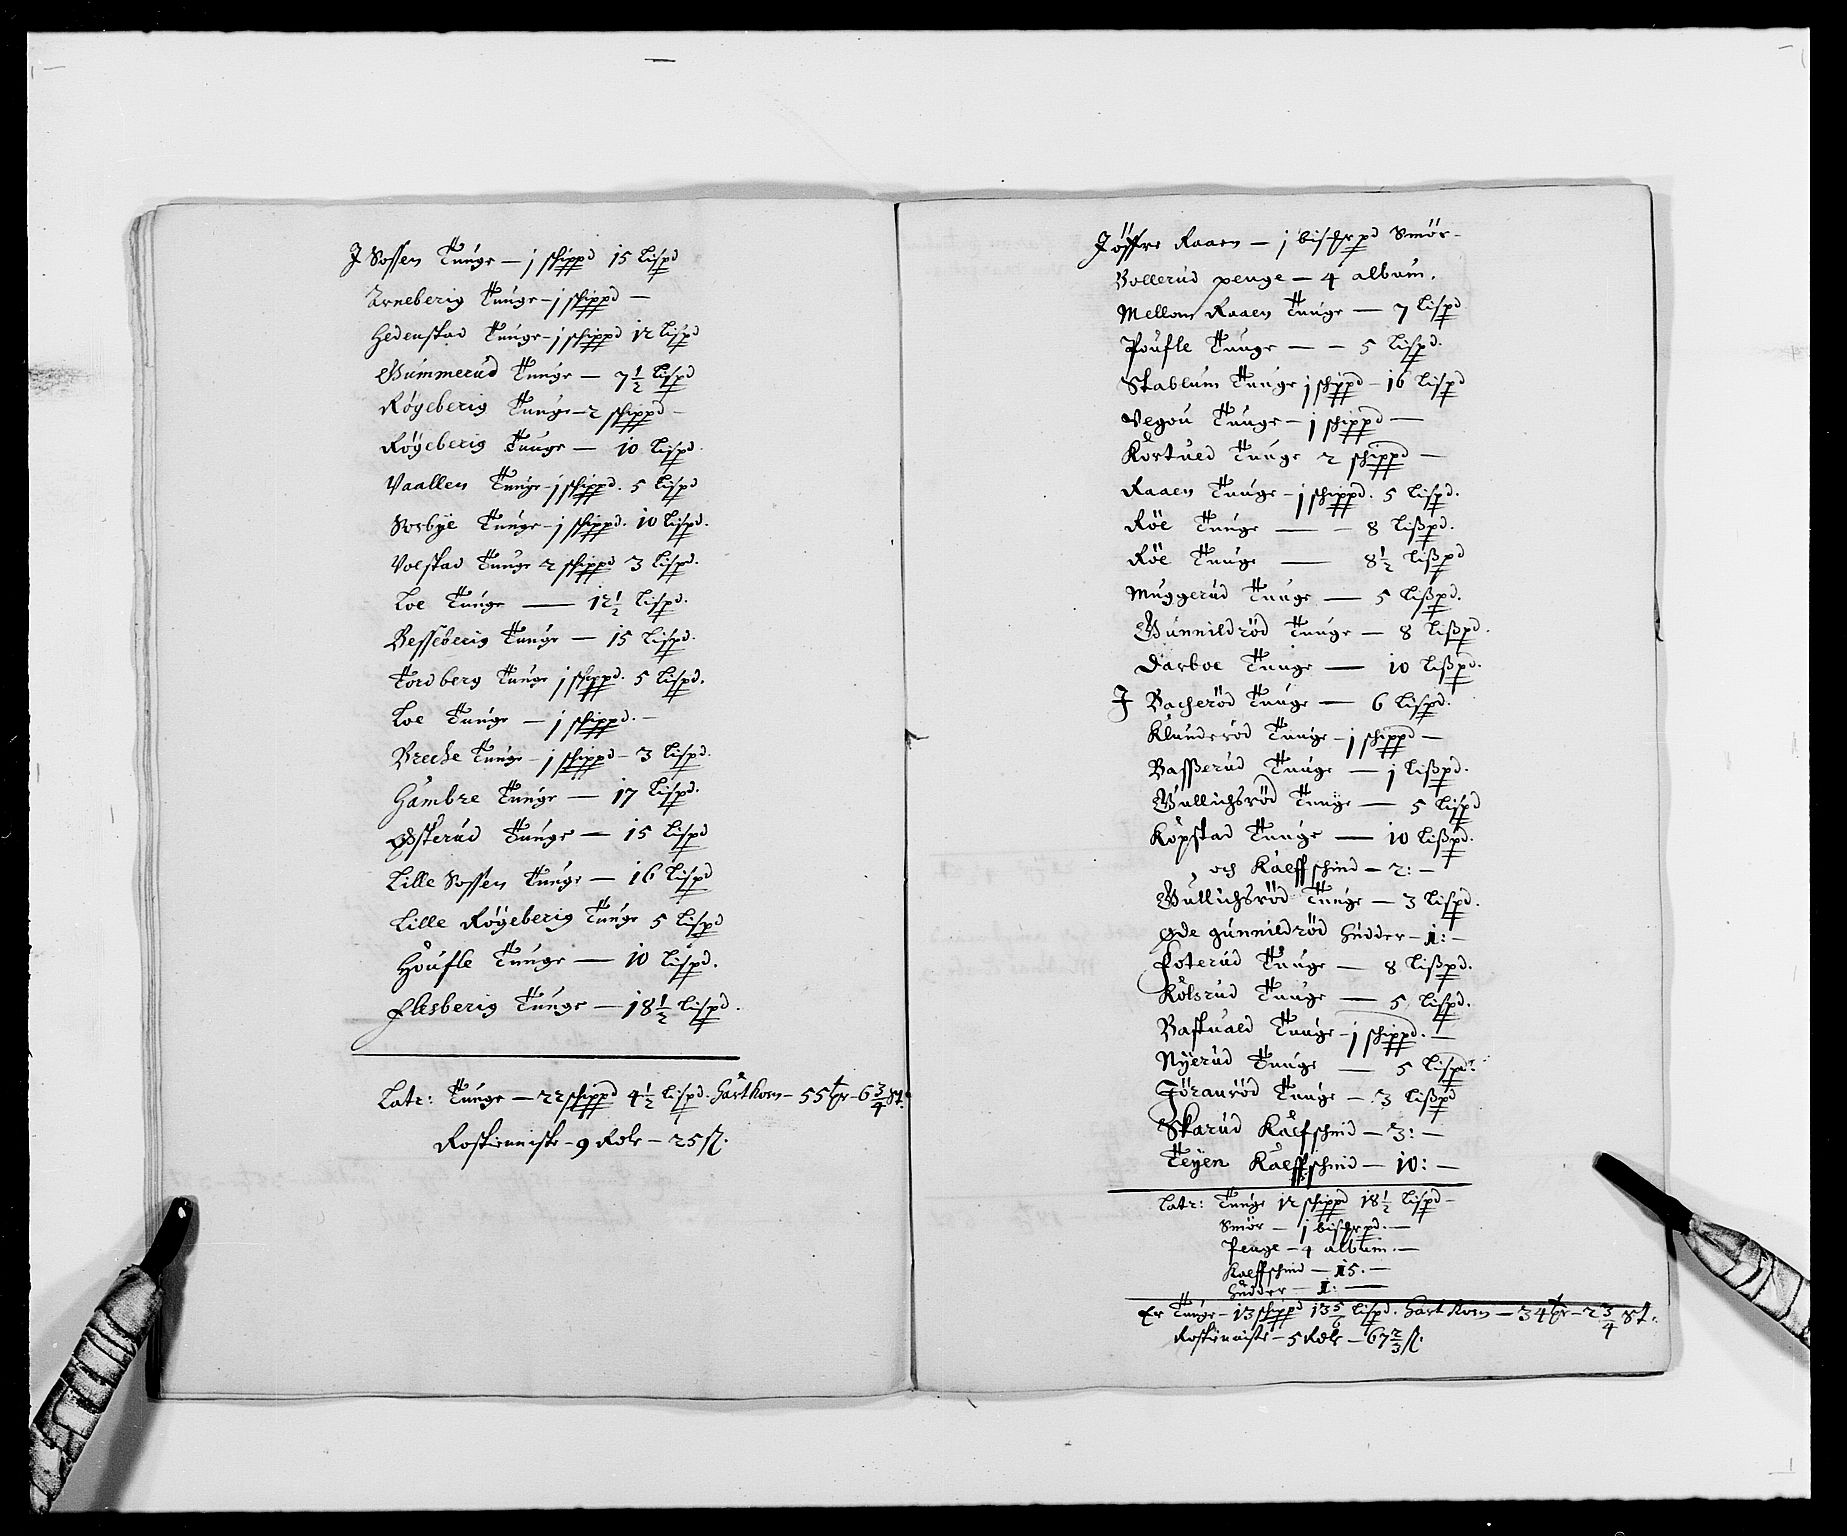 J Sossen Tunge – j schippd 15 Lispd
Arneberig Tunge – j schippd –
Hedenstad Tunge – j schippd 12 Lispd
Gummerud Tunge – 7½ Lispd
Røgeberig Tunge – 2 schippd –
Røgeberig Tunge – 10 Lispd.
Vaallen Tunge – j schippd. 5 Lispd
Sorbÿe Tunge – j schippd. 10 Lispd.
Volstad Tunge 2 schippd 3 Lispd.
Loe Tunge – 12½ Lispd.
Besseberig Tunge – 15 Lispd.
Tordberg Tunge j schippd. 5 Lispd.
Loe Tunge – j schippd. –
Breche Tunge – j schippd – 3 Lispd.
Hambre Tunge – 17 Lispd.
Østerud Tunge – 15 Lispd
Lille Sossen Tunge – 16 Lispd
Lille Røgeberig Tunge 5 Lispd
Houfle Tunge – 10 Lispd.
Flesberig Tunge – 18½ Lispd.
Latr: Tunge – 22 schippd 4½ Lispd. Hartkorn – 55 tr – 6¾ st.
Rostienniste – 9 Rdlr – 25 ſl.
Jøffre Raaen – j bisfrpd Smør –
Bollerud penge – 4 album.
Mellom Raaen Tunge – 7 Lispd
Poufle Tunge – – 5 Lispd.
Stablum Tunge j schippd – 16 Lispd
Vegou Tunge – j schippd –
Kortued Tunge 2 schippd –
Raaen Tunge – j schippd. 5 Lispd.
Røe Tunge – – 8 Lißpd.
Røe Tunge – 8½ Lißpd
Muggerud Tunge – 5 Lißpd.
Gunnildrød Tunge – 8 Lißpd.
Darboe Tunge – 10 Lißpd.
J Bacherød Tunge – 6 Lispd.
Klunderød Tunge – j schippd –
Basserud Tunge – j Lißpd.
Gullichsrød Tunge – 5 Lispd
Kopstad Tunge – 10 Lißpd.
och Kalffschind – 2: –
Gullichsrød Tunge – 3 Lispd.
Øde gunnildrød Hudder – 1: –
Foterud Tunge – 8 Lißpd.
Kolsrud Tunge – 5 Lispd.
Bastuald Tunge – j schippd. –
Nÿerud Tunge – 5 Lispd.
Jøranrød Tunge – 3 Lißpd
Skarud Kalfschind – 3: –
Teÿen Kalffschind – 10: –
Latr: Tunge 12 schippd 18½ Lispd –
Smør – j bisfrpd. –
Penge – 4 album. –
Kalffschind – 15. –
Hudder – 1: –
Er Tunge – 13 schippd 13 5/6 Lispd. Hartkorn – 34 tr – 2¾ st.
Rostienniste – 5 Rdlr – 67⅔ ſl.